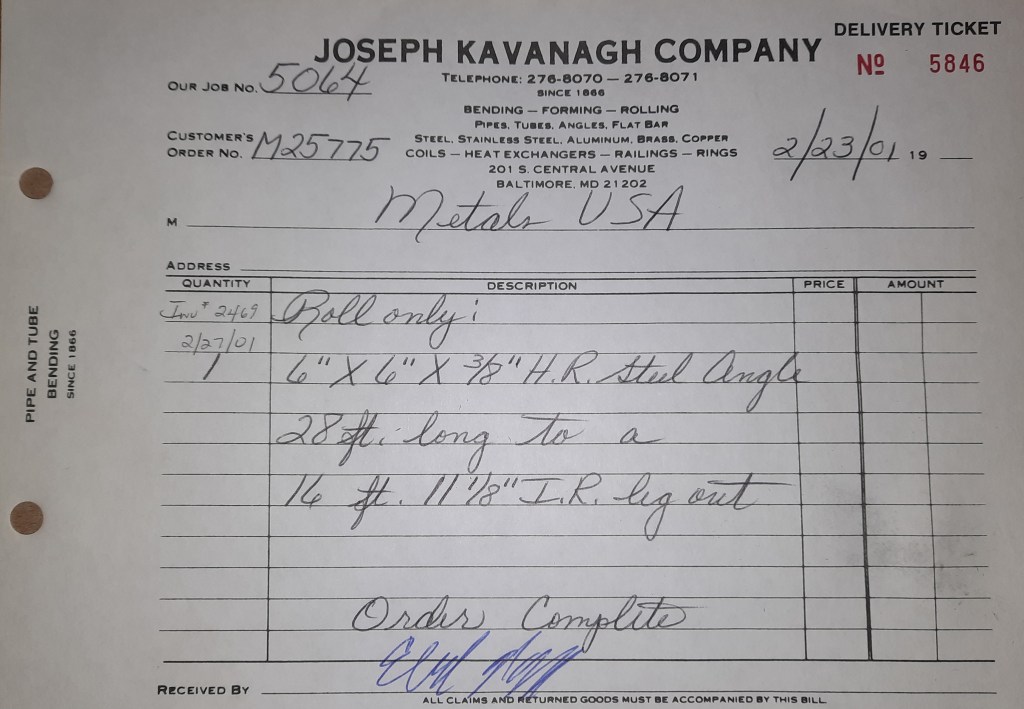 DELIVERY TICKET
JOSEPH KAVANAGH COMPANY
Nº 5846
TELEPHONE: 276-8070 — 276-8071
SINCE 1866
OUR JOB NO. 5064
BENDING — FORMING — ROLLING
PIPES, TUBES, ANGLES, FLAT BAR
CUSTOMER'S
ORDER NO. M25775
STEEL, STAINLESS STEEL, ALUMINUM, BRASS, COPPER
COILS — HEAT EXCHANGERS — RAILINGS — RINGS
2/23/01 19
201 S. CENTRAL AVENUE
BALTIMORE, MD 21202
M Metals USA
ADDRESS
QUANTITY DESCRIPTION PRICE AMOUNT
Inv # 2469 Roll only:
2/27/01
1 6" X 6" X 3/8" H.R. Steel Angle
28 ft. long to a
16 ft. 11 1/8" I.R. leg out
Order Complete
RECEIVED BY
ALL CLAIMS AND RETURNED GOODS MUST BE ACCOMPANIED BY THIS BILL
PIPE AND TUBE
BENDING
SINCE 1866